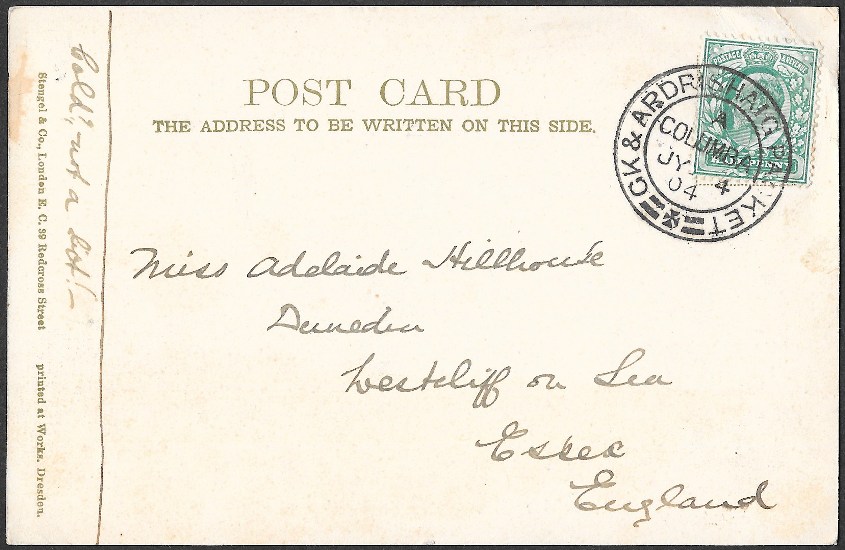 POST CARD
THE ADDRESS TO BE WRITTEN ON THIS SIDE.
GK & ARDRISHAIG PACKET
A
COLUMBA
JY 4
04
POSTAGE & REVENUE
Miss Adelaide Hillhouse
Dunedin
Westcliff on Sea
Essex
England
Cold? - not a bit! -
Stengel & Co., London E. C. 39 Redcross Street printed at Works, Dresden.